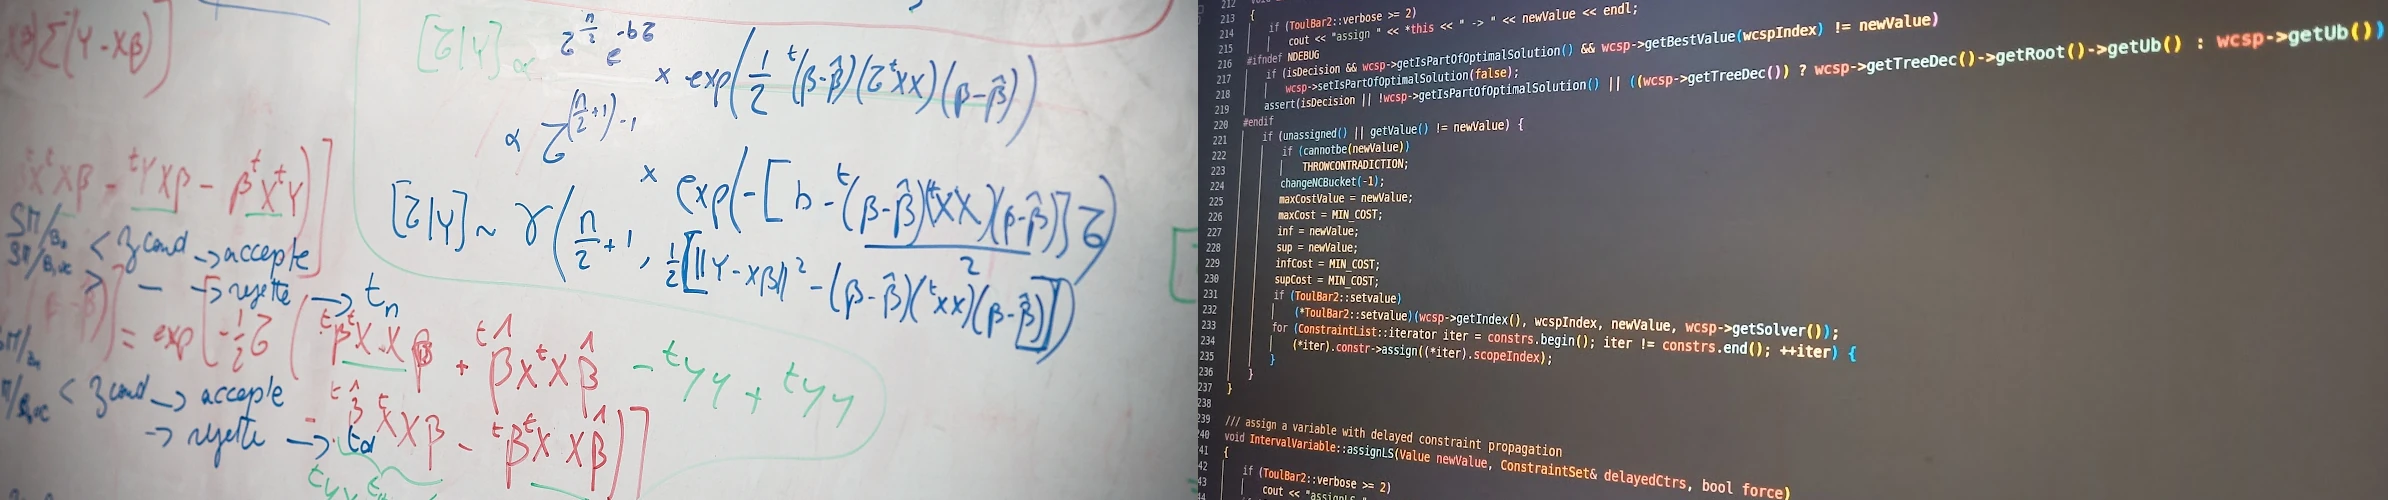 X β)Σ(Y - Xβ)]
[τ|Y] ∝ τ^(n/2) e^(-bτ)
× exp(1/2 ᵗ(β-β̂)(τ ᵗXX)(β-β̂))
∝ τ^((n/2+1)-1)
× exp(-[b - ᵗ(β-β̂)(ᵗXX)(β-β̂)/2]τ)
[τ|Y] ~ γ(n/2 + 1, 1/2[||Y-Xβ||² - (β-β̂)(ᵗXX)(β-β̂)])
ᵗXβ - ᵗYXβ - βᵗXᵗY)]
< 3 cond → accepte
> — → rejette → tn
= exp[-1/2 τ (ᵗβᵗX X β + ᵗβ̂XᵗXβ̂ - ᵗyy + ᵗyy
< 3 cond → accepte
- ᵗβ̂ᵗXXβ - ᵗβᵗX Xβ̂)]
→ rejette → td
212
213 {
214 if (ToulBar2::verbose >= 2)
215 cout << "assign " << *this << " -> " << newValue << endl;
216 #ifndef NDEBUG
217 if (isDecision && wcsp->getIsPartOfOptimalSolution() && wcsp->getBestValue(wcspIndex) != newValue)
218 wcsp->setIsPartOfOptimalSolution(false);
219 assert(isDecision || !wcsp->getIsPartOfOptimalSolution() || ((wcsp->getTreeDec()) ? wcsp->getTreeDec()->getRoot()->getUb() : wcsp->getUb())
220 #endif
221 if (unassigned() || getValue() != newValue) {
222 if (cannotbe(newValue))
223 THROWCONTRADICTION;
224 changeNCBucket(-1);
225 maxCostValue = newValue;
226 maxCost = MIN_COST;
227 inf = newValue;
228 sup = newValue;
229 infCost = MIN_COST;
230 supCost = MIN_COST;
231 if (ToulBar2::setvalue)
232 (*ToulBar2::setvalue)(wcsp->getIndex(), wcspIndex, newValue, wcsp->getSolver());
233 for (ConstraintList::iterator iter = constrs.begin(); iter != constrs.end(); ++iter) {
234 (*iter).constr->assign((*iter).scopeIndex);
235 }
236 }
237 }
238
239 /// assign a variable with delayed constraint propagation
240 void IntervalVariable::assignLS(Value newValue, ConstraintSet& delayedCtrs, bool force)
41 {
42 if (ToulBar2::verbose >= 2)
43 cout << "assignLS "